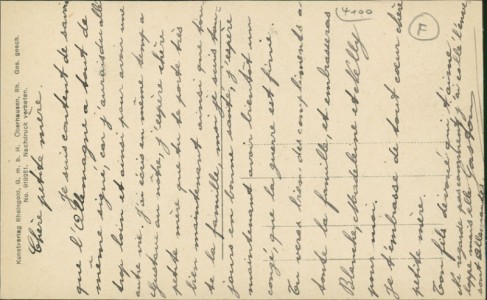 Kunstverlag Rheingold, G. m. b. H. Oberhausen, Rh. Ges. gesch.
Nachdruck verboten.
Chère petite mère.
Je suis content de savoir
que l'Allemagne a tout de
même signé, car j'aurais du aller
trop loin et ainsi pour avoir une
autre ne. J'écris en même temps a
Gustave au nôtre, j'espère chère
petite mère que tu te porte très
bien maintenant ainsi que tou-
te la famille, moi je suis tou-
jours en bonne santé, j'espère
maintenant avoir bientôt un
congé, que la guerre est finie.
Tu veras bien des compliments a
toute la famille, et embrasseras
Blanche, Madeleine et Nelly
pour moi.
Je t'embrasse de tout cœur chère
petite mère.
Ton fils dévoué qui t'aime
Gaston
sont Allemands